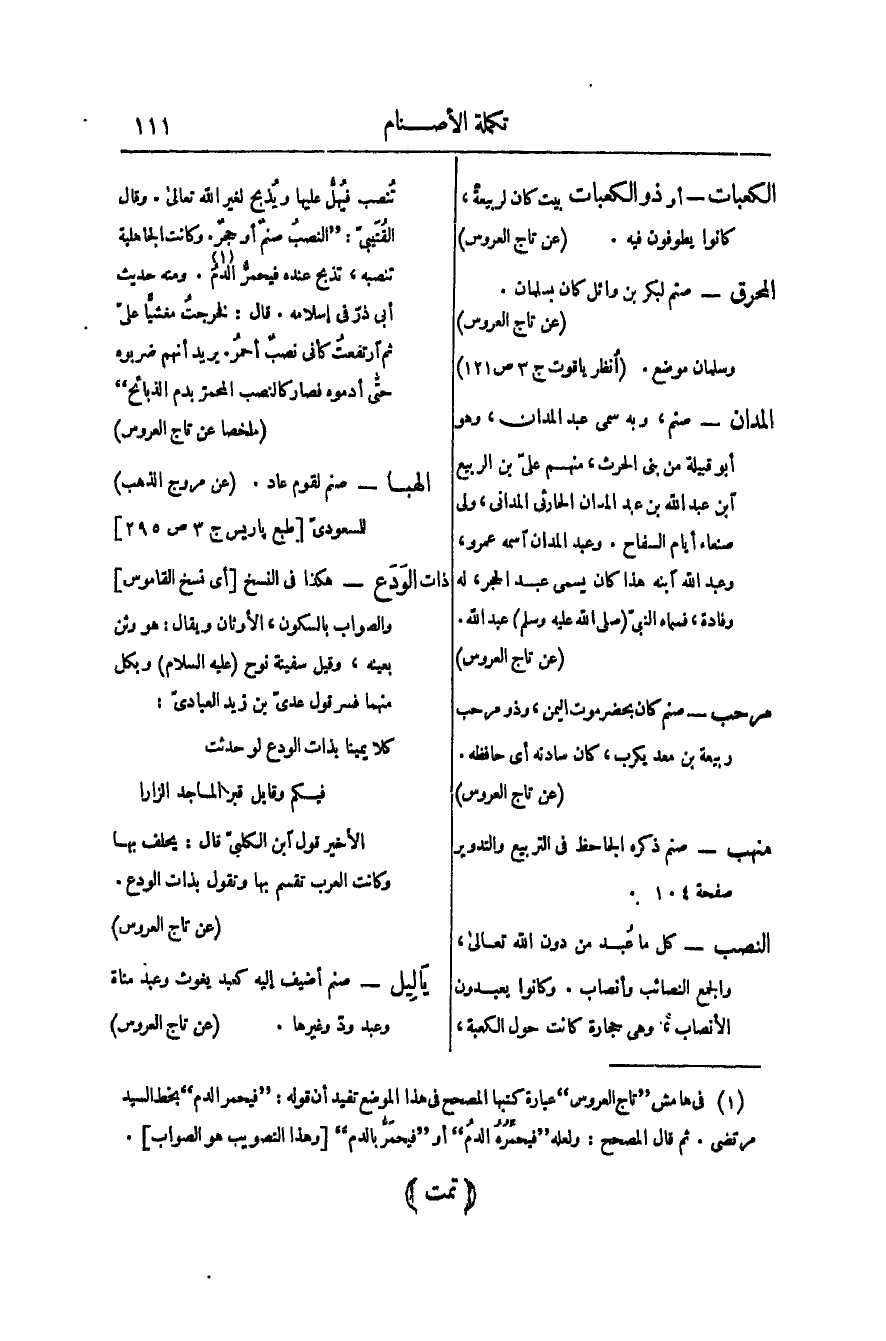 تكملة الأصـــنام ١١١
الكعبات — أو ذو الكعبات بيت كان لربيعة ،
كانوا يطوفون فيه . (عن تاج العروس)
المحرق — صنم لبكر بن وائل كان بسلمان .
(عن تاج العروس)
وسلمان موضع . (أُنظر ياقوت ج ٣ ص ١٢١)
المدان — صنم ، وبه سمى عبد المدان ، وهو
أبو قبيلة من بنى الحرث ، منهم علىّ بن الربيع
آبن عبد الله بن عبد المدان الحارثى المدانى ، ولى
صنعاء أيام السفاح . وعبد المدان آسمه عمرو ،
وعبد الله آبنه هذا كان يسمى عبد الحجر ، له
وفادة ، فسماه النبىّ (صلى الله عليه وسلم) عبد الله .
(عن تاج العروس)
مرحب — صنم كان بحضرموت اليمن ، وذو مرحب
ربيعة بن معد يكرب ، كان سادنه أى حافظه .
(عن تاج العروس)
منهب — صنم ذكره الجاحظ فى التربيع والتدوير
صفحة ١٠٤ .
النصب — كل ما عُبد من دون الله تعالىٰ ،
والجمع النصائب وأنصاب . وكانوا يعبدون
الأنصاب ، وهى حجارة كانت حول الكعبة ،
تُنصب فيُهلُّ عليها ويُذبح لغير الله تعالىٰ . وقال
القُتَيبىّ : ”النصبُ صنمٌ أو حجرٌ . وكانت الجاهلية
تنصبه ، تذبح عنده فيحمرُّ الدمُ (١) . ومنه حديث
أبى ذرّ فى إسلامه . قال : فخرجتُ مغشيًّا علىّ
ثم آرتفعتُ كأنى نصبٌ أحمرُ . يريد أنهم ضربوه
حتّٰى أدموه فصار كالنصب المحمرّ بدم الذبائح“
(ملخصا عن تاج العروس)
الهبـا — صنم لقوم عاد . (عن مروج الذهب)
للسعودىّ [طبع باريس ج ٣ ص ٢٩٥]
ذات الوَدَع — هكذا فى النسخ [أى نسخ القاموس]
والصواب بالسكون ، الأوثان ويقال : هو وثن
بعينه ، وقيل سفينة نوح (عليه السلام) وبكل
منهما فسر قول عدىّ بن زيد العبادىّ :
كلا يمينا بذات الودع لو حدثت
فيكم وقابل قبر الماجد الزارا
الأخير قول آبن الكلبىّ قال : يحلف بها
وكانت العرب تقسم بها وتقول بذات الودع .
(عن تاج العروس)
يَاَلِيل — صنم أضيف إليه كعبد يغوث وعبد مناة
وعبد ودّ وغيرها . (عن تاج العروس)
(١) فى هامش ”تاج العروس“ عبارة كتبها المصحح فى هذا الموضع تفيد أن قوله : ”فيحمر الدم“ بخط السيد
مرتضى . ثم قال المصحح : ولعله ”فيحمِّرُهُ الدمُ“ أو ”فيحمرُّ بالدم“ [وهذا التصويب هو الصواب] .
(تمت)